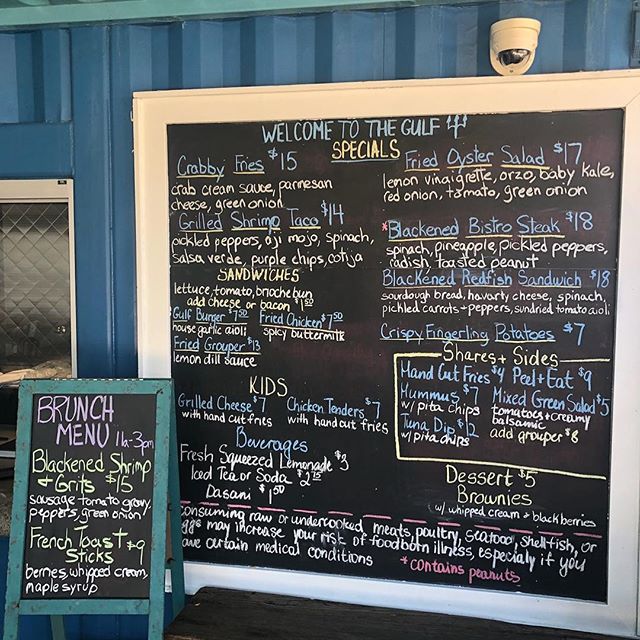 WELCOME TO THE GULF
SPECIALS
Crabby Fries $15
crab cream sauce, parmesan
cheese, green onion
Grilled Shrimp Taco $14
pickled peppers, aji mojo, spinach,
salsa verde, purple chips, cotija
SANDWICHES
lettuce, tomato, brioche bun
add cheese or bacon $1.50
Gulf Burger $7.50
house garlic aioli
Fried Chicken $7.50
spicy buttermilk
Fried Grouper $13
lemon dill sauce
KIDS
Grilled Cheese $7
with hand cut fries
Chicken Tenders $7
with hand cut fries
Beverages
Fresh Squeezed Lemonade $3
Iced Tea or Soda $2.75
Dasani $1.50
Fried Oyster Salad $17
lemon vinaigrette, orzo, baby kale,
red onion, tomato, green onion
*Blackened Bistro Steak $18
spinach, pineapple, pickled peppers,
radish, toasted peanut
Blackened Redfish Sandwich $18
sourdough bread, havarty cheese, spinach,
pickled carrots + peppers, sundried tomato aioli
Crispy Fingerling Potatoes $7
Shares + Sides
Hand Cut Fries $4
Hummus $7
w/ pita chips
Tuna Dip $12
w/ pita chips
Peel + Eat $9
Mixed Green Salad $5
tomatoes + creamy
balsamic
add grouper $8
Dessert $5
Brownies
w/ whipped cream + blackberries
consuming raw or undercooked meats, poultry, seafood, shellfish, or
eggs may increase your risk of foodborn illness, especially if you
have certain medical conditions
*contains peanuts
BRUNCH
MENU 11a-3pm
Blackened Shrimp
+ Grits $15
sausage tomato gravy,
peppers, green onion
French Toast
Sticks $9
berries, whipped cream,
maple syrup